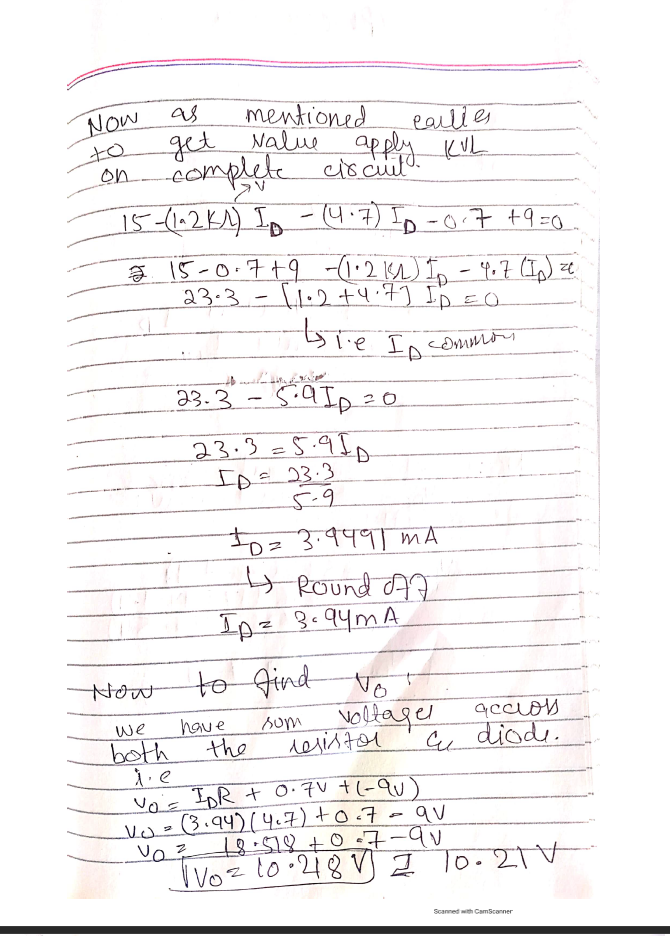 Now as mentioned earlier
to get value apply KVL
on complete circuit.
→ V
15-(1.2KΩ) I_D - (4.7) I_D - 0.7 + 9 = 0
15 - 0.7 + 9 - (1.2 KΩ) I_D - 4.7 (I_D) =
23.3 - [1.2 + 4.7] I_D = 0
↳ i.e I_D common
23.3 - 5.9 I_D = 0
23.3 = 5.9 I_D
I_D = 23.3
5.9
I_D = 3.9491 mA
↳ Round off
I_D = 3.94 mA
Now to find V_0 :
we have sum voltages accross
both the resistor & diode.
i.e
V_0 = I_D R + 0.7V + (-9V)
V_0 = (3.94)(4.7) + 0.7 - 9V
V_0 = 18.518 + 0.7 - 9V
V_0 = 10.218 V I 10.21 V
Scanned with CamScanner